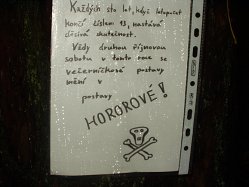 Každých sto let, když letopočet
končí číslem 13, nastává
děsivá skutečnost.
Vždy druhou říjnovou
sobotu v tomto roce se
večerníčkové postavy
mění v
postavy
HOROROVÉ!